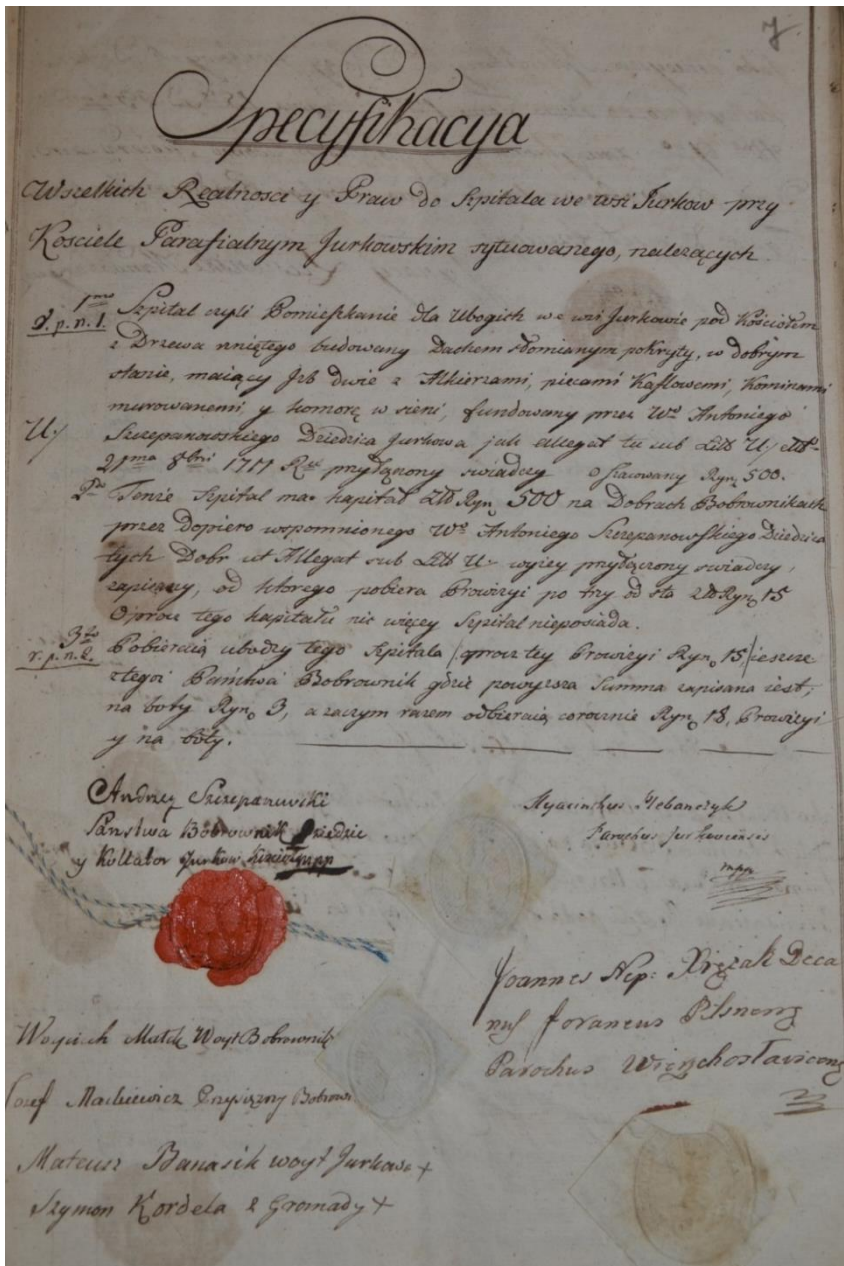 7.
Specyfikacya
Wszelkich Realnosci y Praw do Szpitala we wsi Jurkow przy
Kosciele Parafialnym Jurkowskim sytuowanego, nalezących.
1mo Szpital czyli Pomieszkanie dla Ubogich we wsi Jurkowie pod Kościołem
d. p. n. 1. z Drzewa rzniętego budowany Dachem słomianym pokryty, w dobrym
stanie, maiący Jzb dwie z Alkierzami, piecami Kaflowemi, Kominami
murowanemi, y komorę w sieni, fundowany przez Wo Antoniego
U./ Szczepanowskiego Dziedzica Jurkowa jak allegat tu sub Litt U./ dto
21ma 8bri 1777 przyłączony swiadczy oszacowany Ryn. 500.
2do Tenze Szpital ma kapitał Zło Ryn. 500 na Dobrach Bobrownikach
przez dopiero wspomnionego Wo Antoniego Szczepanowskiego Dziedzica
tych Dobr ut Allegat sub Litt U./ wyzey przyłączony swiadczy,
zapisany, od ktorego pobiera Prowizyi po trzy od sta Zło Ryn. 15
Oprocz tego kapitału nic więcey Szpital nieposiada.
3tio Pobieraią ubodzy tego Szpitala /oprocz tey Prowizyi Ryn. 15/ ieszcze
r. p. n. 2. z tegoz Państwa Bobrownik gdzie powyzsza Summa zapisana iest,
na boty Ryn. 3, a zaczym razem odbieraią corocznie Ryn. 18, Prowizyi
y na boty.
Andrzey Szczepanowski
Państwa Bobrownik Dziedzic
y Kollator Jurkow. mpp
Hyacinthus
Parochus Jurkoviensis
mpp
Joannes Nep: Xiężak Deca
nus Foraneus Pilsnens
Parochus Wierzchosławicens
Woyciech Matek Woyt Bobrownik
Jozef Mackiewicz Przysiężny Bobrow
Mateusz Banasik woyt Jurkow +
Szymon Kordela z Gromady +